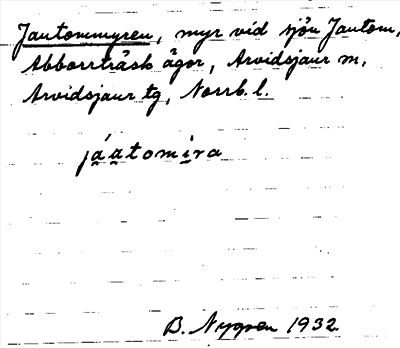 Jautommyren, myr vid sjön Jautom,
Abborrträsk ägor, Arvidsjaur m,
Arvidsjaur tg, Norrb. l.
já̱a̱tomi̱ra
B. Nygren 1932